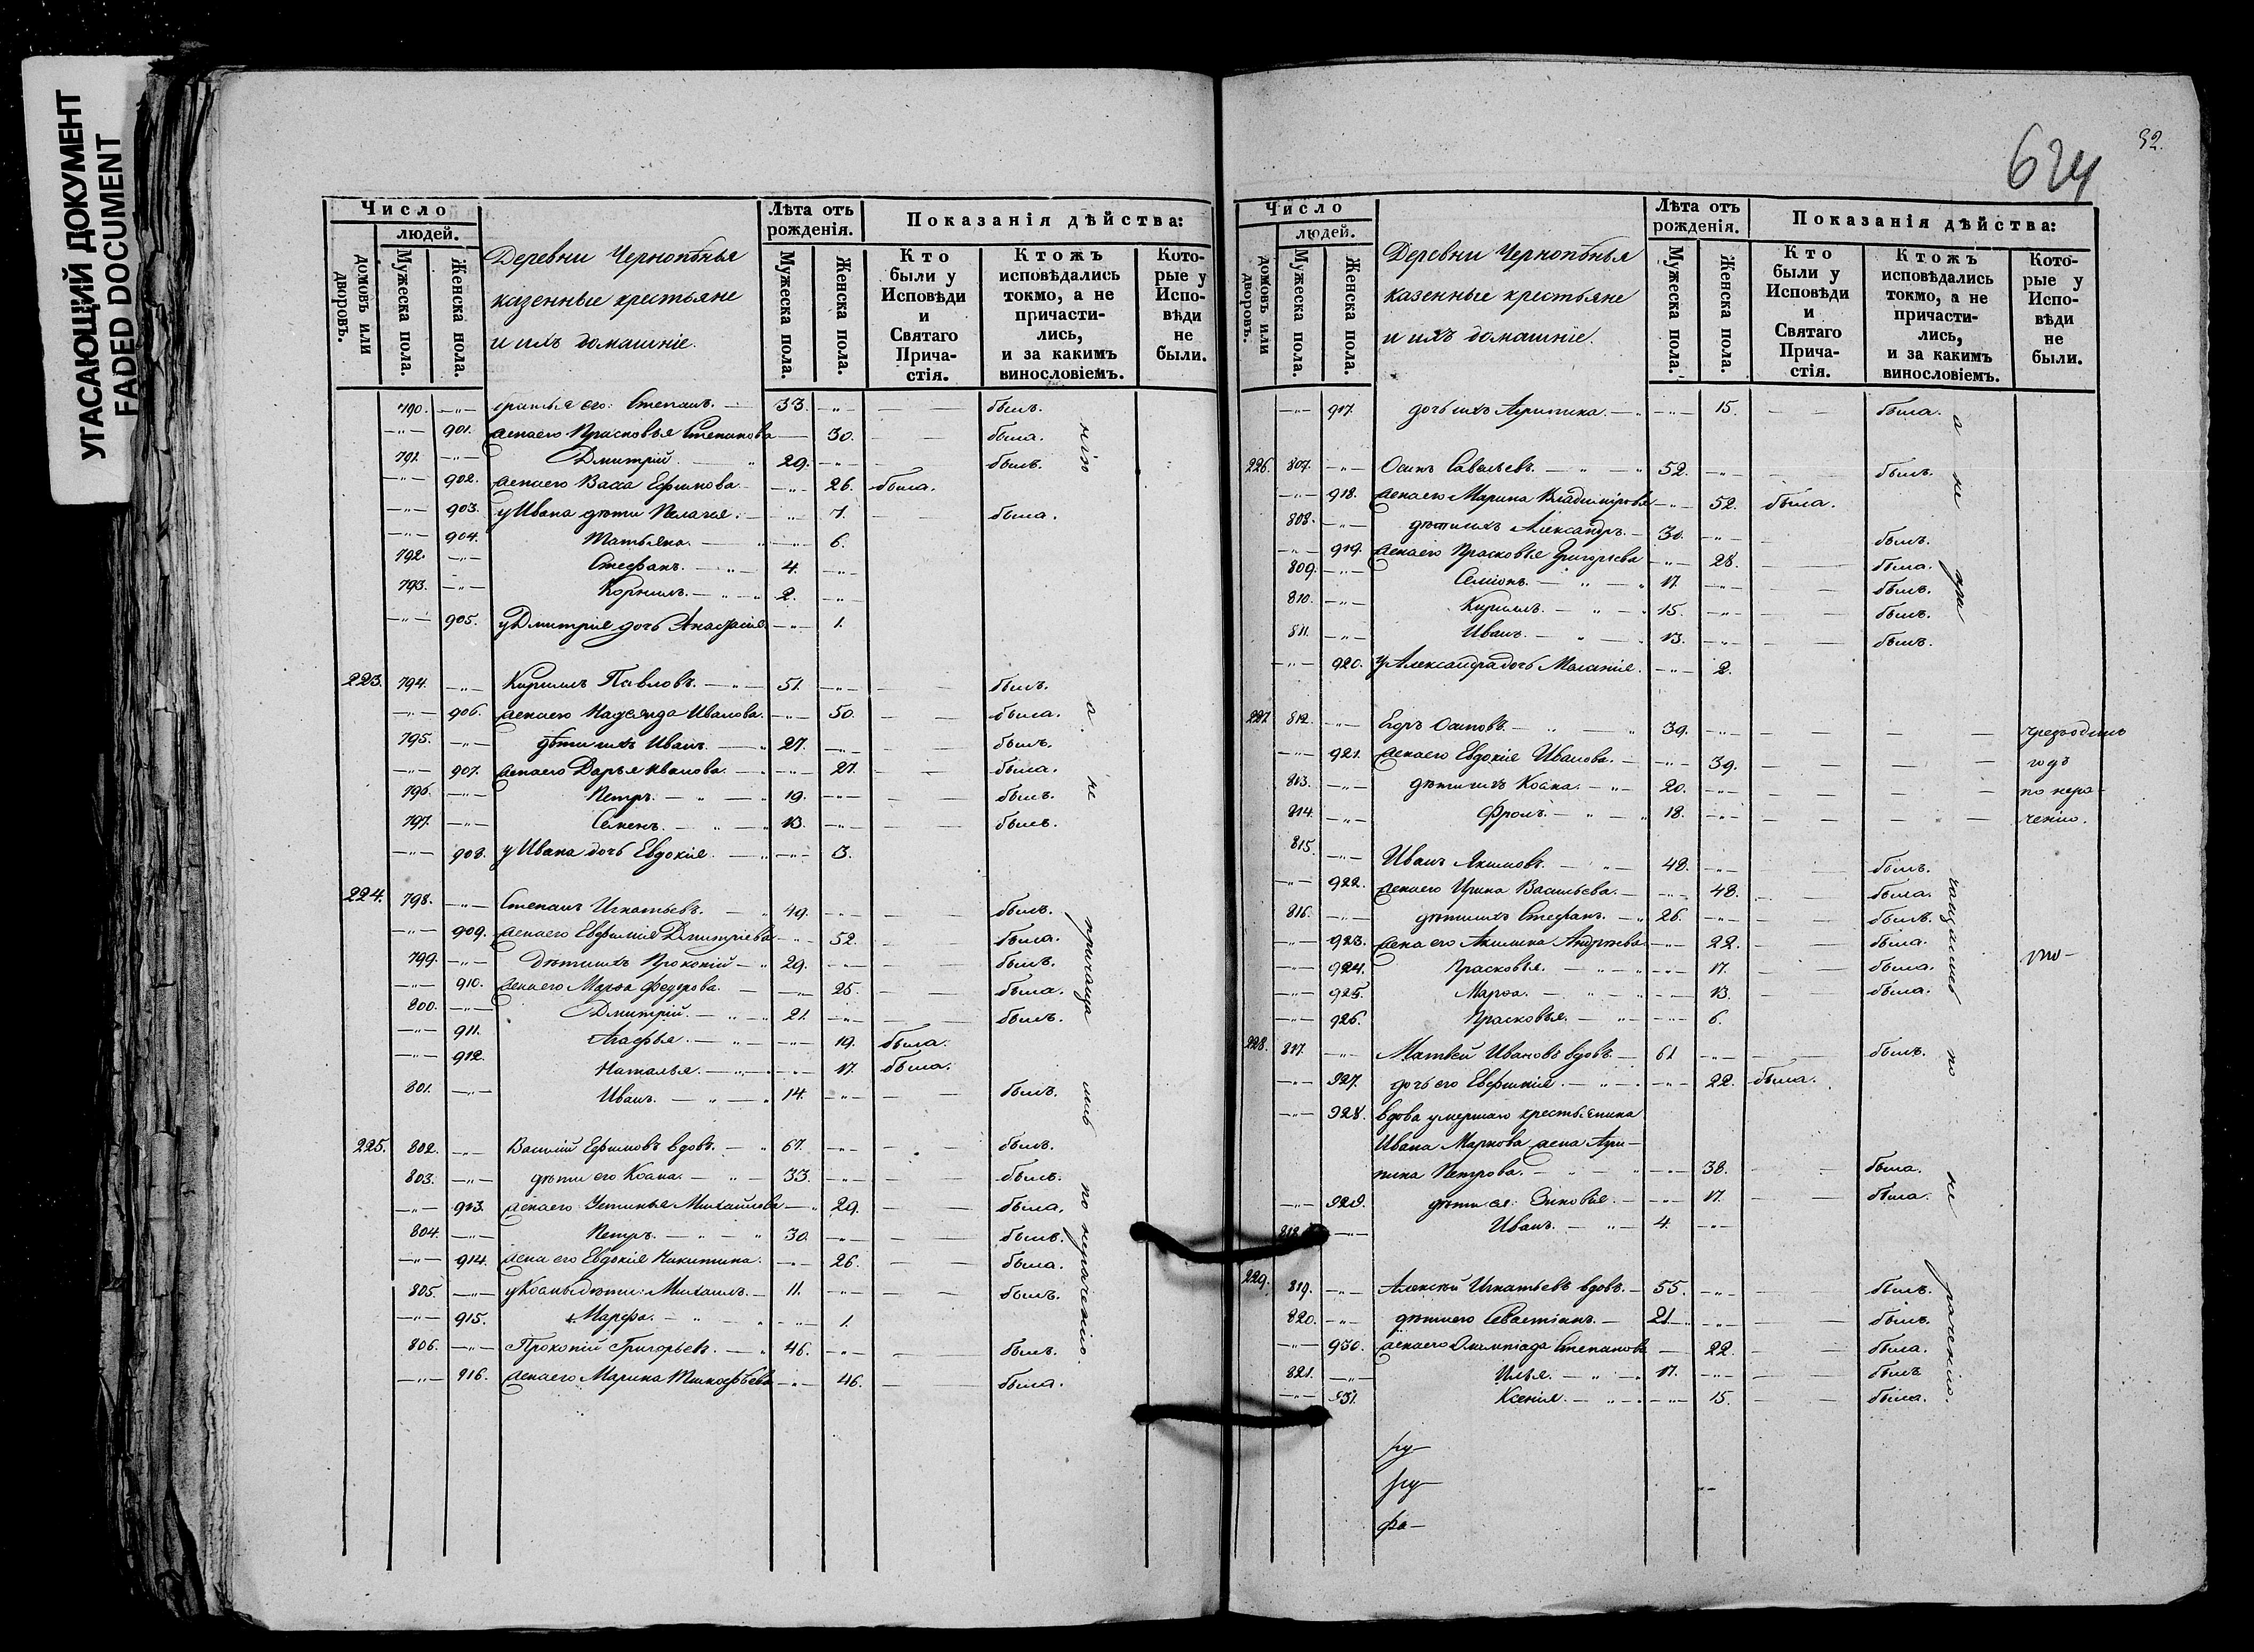 УГАСАЮЩИЙ ДОКУМЕНТ
FADED DOCUMENT
Число
людей.
домовъ или дворовъ.
Мужеска пола.
Женска пола.
Деревни Чернопѣнья
казенные крестьяне
и ихъ домашніе.
Лѣта отъ рожденія.
Мужеска пола.
Женска пола.
Показанія дѣйства:
Кто были у Исповѣди и Святаго Прича- стія.
Ктожъ исповѣдались токмо, а не причасти- лись, и за какимъ винословіемъ.
Кото- рые у Испо- вѣди не были.
790. —„— братья его: Степанъ. — 33. —„— — — былъ.
—„— 901. жена его Прасковья Степанова — 30. — — была.
791. —„— Дмитрій. — „ 29. —„— — былъ.
—„— 902. жена его Васса Ефимова — —„— 26. была.
—„— 903. у Ивана дѣти Пелагея. — „— 7. — — была.
—„— 904. Татьяна. — —„— 6.
792. —„— Стефанъ. — „— 4. —„—
793. —„— Корнилъ. — „ — „ 2. —„—
—„— 905. у Дмитрія дочь Анастасія. —„— 1.
223. 794. —„— Кириллъ Павловъ. — „— 51. —„— — — былъ.
—„— 906. жена его Надежда Иванова. —„— 50. — — была.
795. —„— дѣти ихъ Иванъ. — „ 27. —„— — — былъ.
—„— 907. жена его Дарья Иванова. — —„— 27. — — была.
796. —„— Петръ. — „ — „ 19. —„— — — былъ.
797. —„— Семенъ. — „ — „ 13. —„— — — былъ.
—„— 908. у Ивана дочь Евдокія. — „ —„— 3.
224. 798. —„— Степанъ Игнатьевъ. — „ 49. —„— — — былъ.
—„— 909. жена его Евфимія Дмитріева —„— 52. — — была.
799. —„— дѣти ихъ Прокопій — „ 29. —„— — — былъ.
—„— 910. жена его Марѳа Федорова. — —„— 25. — — была.
800. —„— Дмитрій. — „ — „ 21. —„— — — былъ.
—„— 911. Агафья. — „ — —„— 19. была.
—„— 912. Наталья. — „— —„— 17. была.
801. —„— Иванъ. — „ — „ 14. —„— — — былъ.
225. 802. —„— Василій Ефимовъ вдовъ. — „ 67. —„— — — былъ.
803. —„— дѣти его Козма. — „ — 33. —„— — — былъ.
—„— 913. жена его Устинья Михайлова — „ 29. — — была.
804. —„— Петръ. — „ — „ 30. —„— — — былъ.
—„— 914. жена его Евдокія Никитина. —„— 26. — — была.
805. —„— у Козмы дѣти: Михаилъ. — 11. —„— — — былъ.
—„— 915. Марфа. — „ — „ —„— 1.
806. —„— Прокопій Григорьевъ. — „ 46. —„— — — былъ.
—„— 916. жена его Марина Тимофѣева —„— 46. — — была.
нію
а не причаща лись по нераченію.
32.
624
Число
людей.
домовъ или дворовъ.
Мужеска пола.
Женска пола.
Деревни Чернопѣнья
казенные крестьяне
и ихъ домашніе.
Лѣта отъ рожденія.
Мужеска пола.
Женска пола.
Показанія дѣйства:
Кто были у Исповѣди и Святаго Прича- стія.
Ктожъ исповѣдались токмо, а не причасти- лись, и за какимъ винословіемъ.
Кото- рые у Испо- вѣди не были.
—„— 917. дочь ихъ Агрипина. — „ —„— 15. — — была.
226. 807. —„— Осипъ Савельевъ. — „ — „ 52. —„— — — былъ.
—„— 918. жена его Марина Владимірова —„— 52. была.
808. —„— дѣти ихъ Александръ. — 30. —„— — — былъ.
—„— 919. жена его Прасковья Григорьева —„— 28. — — была.
809. —„— Семіонъ. — „ — „ 17. —„— — — былъ.
810. —„— Кириллъ. — „ — „ 15. —„— — — былъ.
811. —„— Иванъ. — „ — „ 13. —„— — — былъ.
—„— 920. у Александра дочь Маланія. —„— 2.
227. 812. —„— Егоръ Осиповъ. — „ — „ 39. —„— — — —
—„— 921. жена его Евдокія Иванова. — —„— 39. — — —
813. —„— дѣти ихъ Козма. — „— 20. —„— — — —
814. —„— Фролъ. — „ — „ 18. —„— — — —
чрезъ одинъ
годъ
по нера-
ченію.
815. —„— Иванъ Якимовъ. — „— 48. —„— — — былъ.
—„— 922. жена его Ирина Васильева. — —„— 48. — — была.
816. —„— дѣти ихъ Стефанъ. — „ 26. —„— — — былъ.
—„— 923. жена его Акилина Андреева —„— 22. — — была.
—„— 924. Прасковья. — „— „ —„— 17. — — была.
—„— 925. Марѳа. — „ — „ —„— 13. — — была.
—„— 926. Прасковья. — „— —„— 6.
228. 817. —„— Матвей Ивановъ вдовъ. — 61 —„— — — былъ.
—„— 927. дочь его Евфимія. — „— „ —„— 22. была.
—„— 928. вдова умершаго крестьянина
Ивана Маркова жена Агри-
пина Петрова. — „ — „ —„— 38. — — была.
—„— 929. дѣти ея: Зиновія. — —„— 17. — — была.
818. —„— Иванъ. — „— 4. —„—
229. 819. —„— Алексѣй Игнатьевъ вдовъ. — 55. —„— — — былъ.
820. —„— дѣти его Севастіанъ. — 21. —„— — — былъ.
—„— 930. жена его Олимпіада Степанова — 22. — — была.
821. —„— Илья. — „ — „ 17. —„— — — былъ
—„— 931. Ксенія. — „ — „ —„— 15. — — была.
а не прича щались по не раченію.